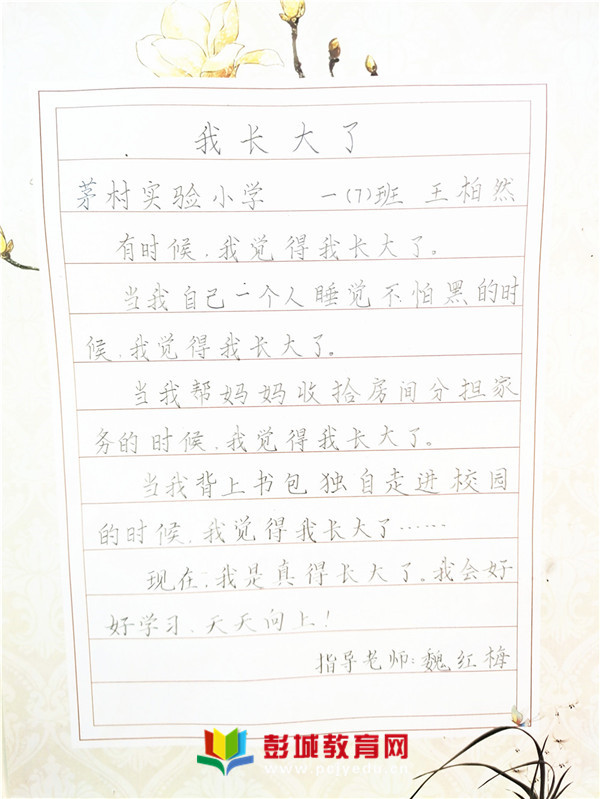 我长大了
茅村实验小学 一(7)班 王柏然
有时候，我觉得我长大了。
当我自己一个人睡觉不怕黑的时
候，我觉得我长大了。
当我帮妈妈收拾房间分担家
务的时候，我觉得我长大了。
当我背上书包独自走进校园
的时候，我觉得我长大了……
现在，我是真得长大了。我会好
好学习、天天向上！
指导老师：魏红梅
彭城教育网
www.pcjyedu.cn